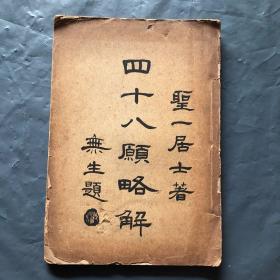 聖一居士著
四十八願略解
無生題